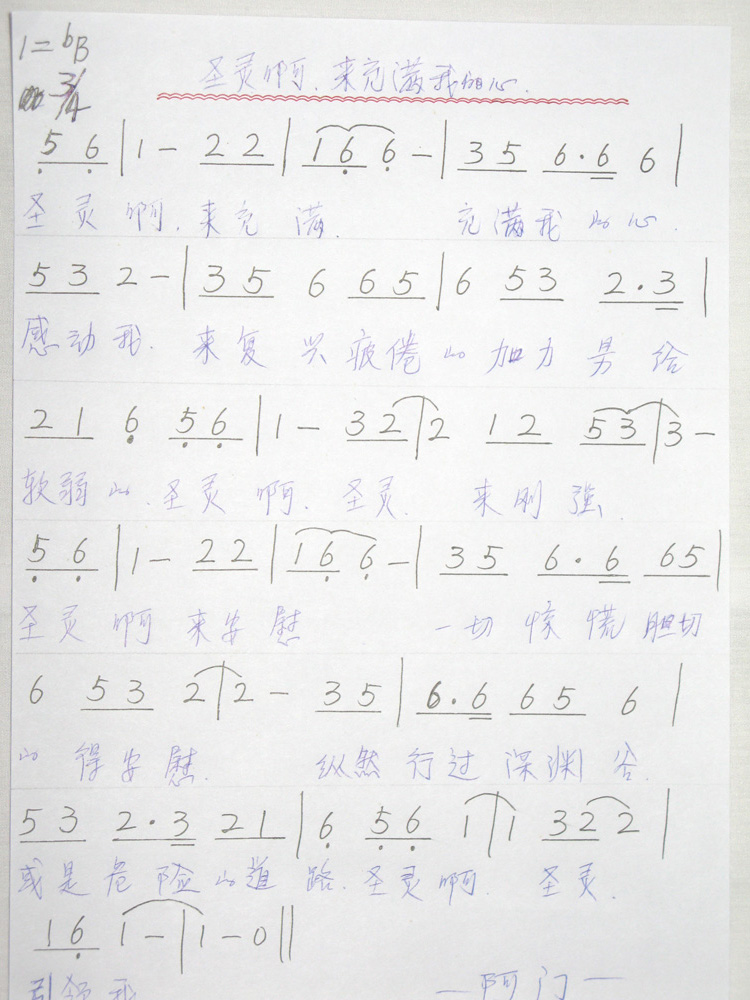 1=bB
3/4
圣灵啊.来充满我的心.
5 6 | 1 - 2 2 | 1 6 6 - | 3 5 6·6 6 |
圣灵啊.来充满. 充满我的心.
5 3 2 - | 3 5 6 6 5 | 6 5 3 2·3 |
感动我.来复兴疲倦的加力男给
2 1 6 5 6 | 1 - 3 2 | 2 1 2 5 3 | 3 -
软弱的.圣灵啊.圣灵.来刚強.
5 6 | 1 - 2 2 | 1 6 6 - | 3 5 6·6 6 5 |
圣灵啊来安慰 一切惊慌胆切
6 5 3 2 | 2 - 3 5 | 6·6 6 5 6 |
的得安慰. 纵然行过深渊谷.
5 3 2·3 2 1 | 6 5 6 1 | 1 3 2 2 |
或是危险的道路.圣灵啊.圣灵.
1 6 1 - | 1 - 0 ||
引领我 —阿门—